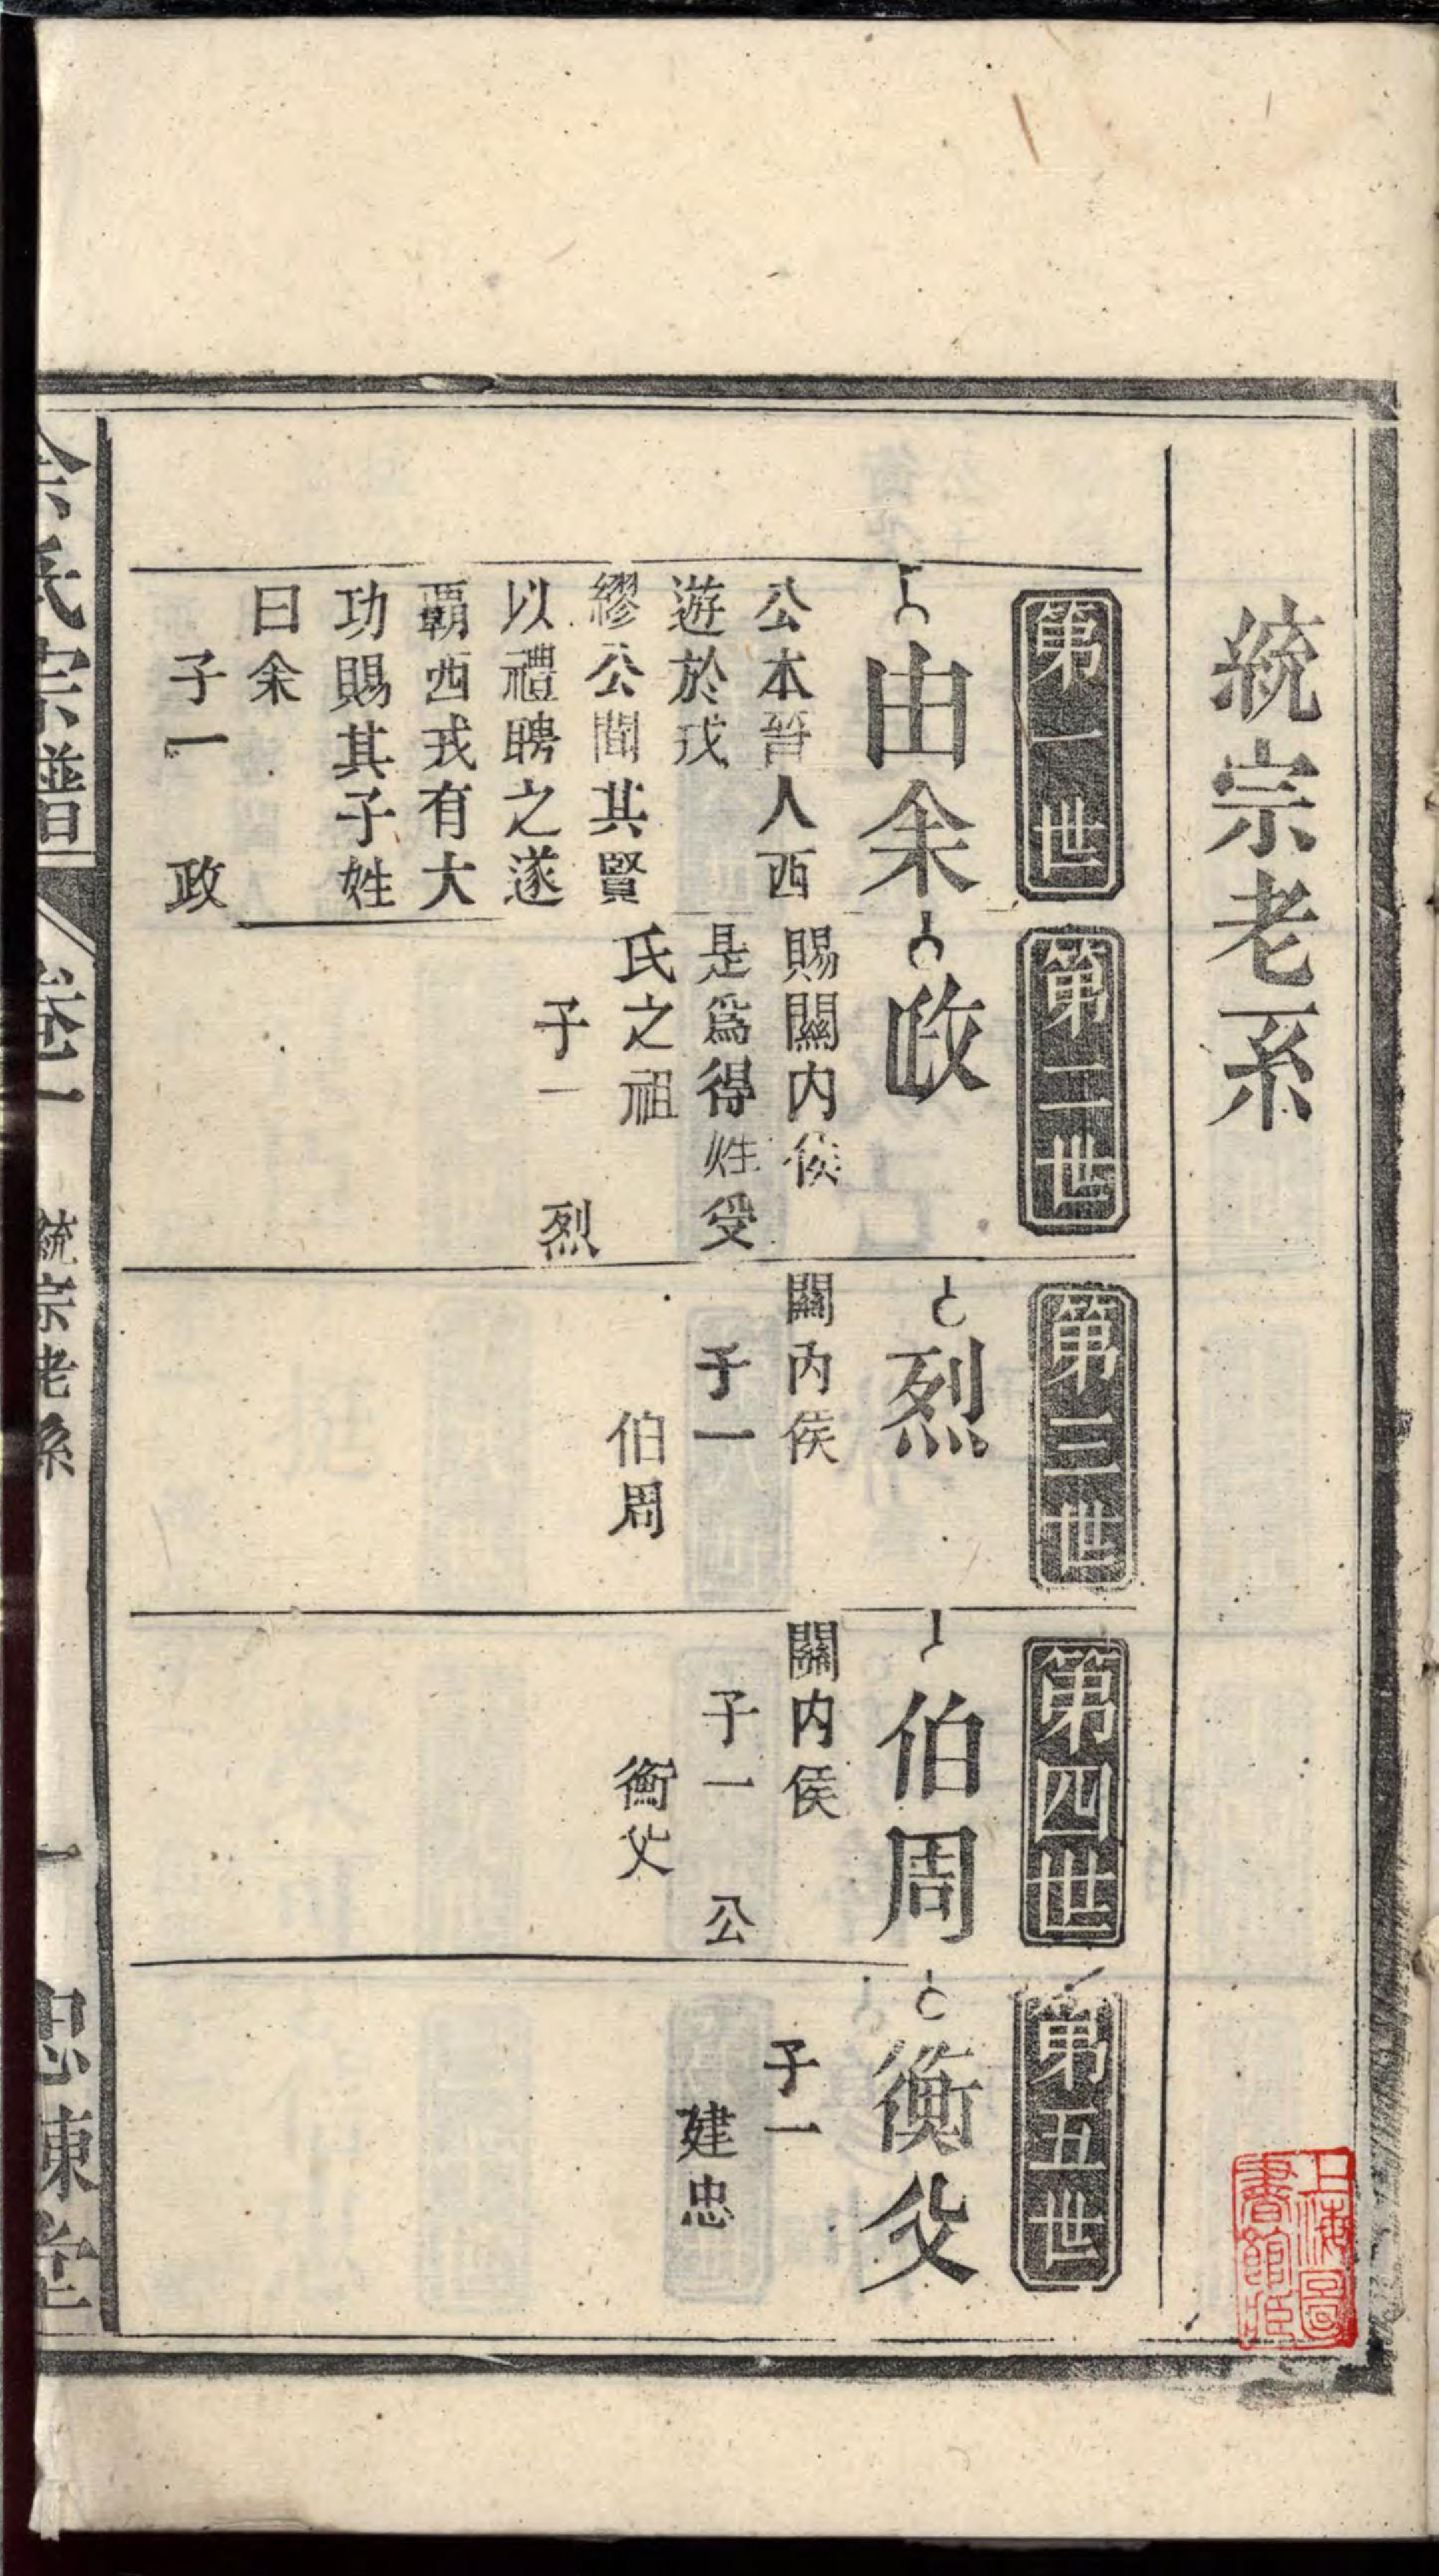 統宗老系
第一世
由余
公本晉人西
遊於戎
繆公聞其賢
以禮聘之遂
覇西戎有大
功賜其子姓
曰余
子一　政
第二世
政
賜關内侯
是爲得姓受
氏之祖
子一　烈
第三世
烈
關内侯
子一
伯周
第四世
伯周
關内侯
子一　公
衡父
第五世
衡父
子一
建忠
余氏宗譜
卷一
統宗老系
一
忠陳堂
上海圖
書館藏